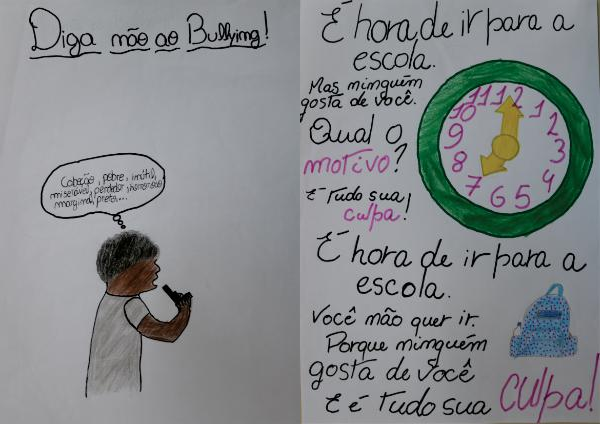 Diga não ao Bullying!
Cabeção, pobre, inútil,
miserável, perdedor, horroroso
marginal, preto...
É hora de ir para a
escola.
Mas ninguém
gosta de você.
Qual o
motivo?
E Tudo sua
culpa!
12
1
2
3
4
5
6
7
8
9
10
11
É hora de ir para a
escola.
Você não quer ir.
Porque ninguém
gosta de você
E é Tudo sua culpa!